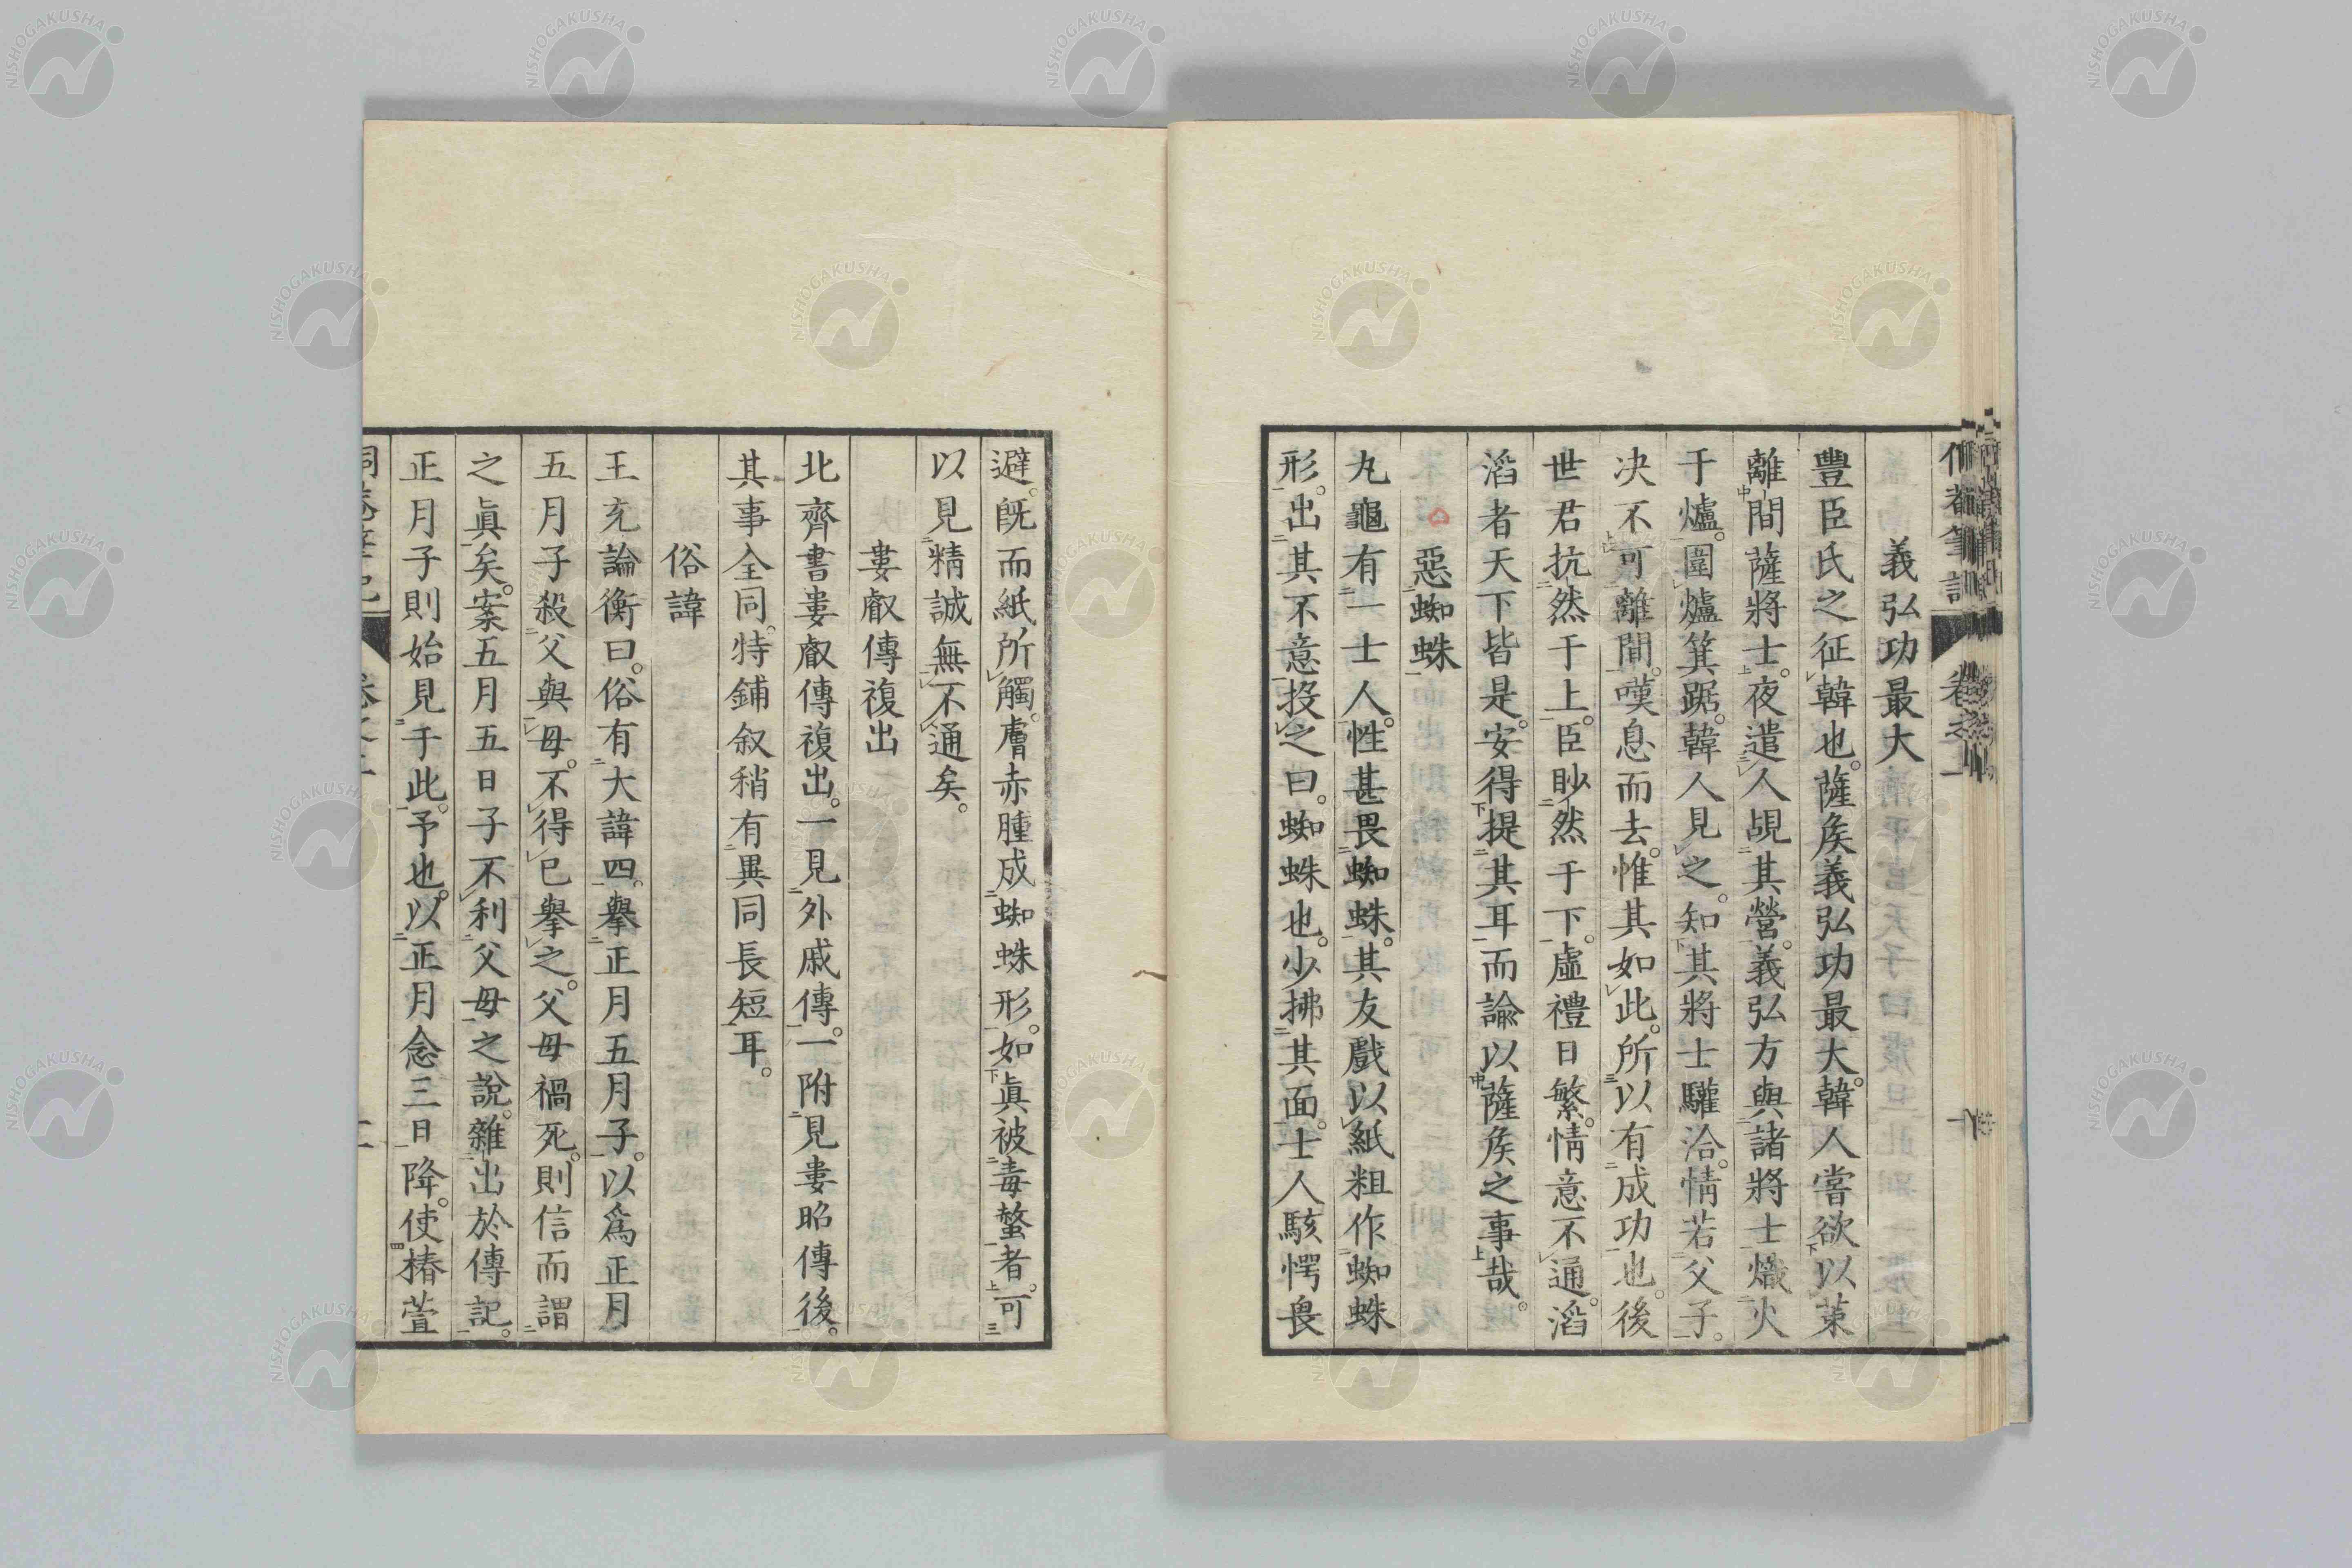 義弘功最大
豐臣氏之征韓也。薩矦義弘功最大。韓人嘗欲以某
離間薩將士。夜遣人覘其營。義弘方與諸將士熾火
于爐。圍爐箕踞。韓人見之。知其將士驩洽。情若父子。
决不可離間。嘆息而去。惟其如此。所以有成功也。後
世君抗然于上。臣眇然于下。虛禮日繁。情意不通。滔
滔者天下皆是。安得提其耳。而諭以薩矦之事哉。
惡蜘蛛
丸龜有一士人。性甚畏蜘蛛。其友戲以紙粗作蜘蛛
形。出其不意。投之曰。蜘蛛也。少拂其面。士人駭愕畏
避。旣而紙所觸。膚赤腫成蜘蛛形。如眞被毒螫者。可
以見精誠無不通矣。
婁叡傳複出
北齊書婁叡傳複出。一見外戚傳。一附見婁昭傳後。
其事全同。特鋪叙稍有異同長短耳。
俗諱
王充論衡曰。俗有大諱四。擧正月五月子。以爲正月
五月子殺父與母。不得已擧之。父母禍死。則信而謂
之眞矣。案五月五日子不利父母之說。雜出於傳記。
正月子則始見于此。予也。以正月念三日降。使椿萱
NISHOGAKUSHA